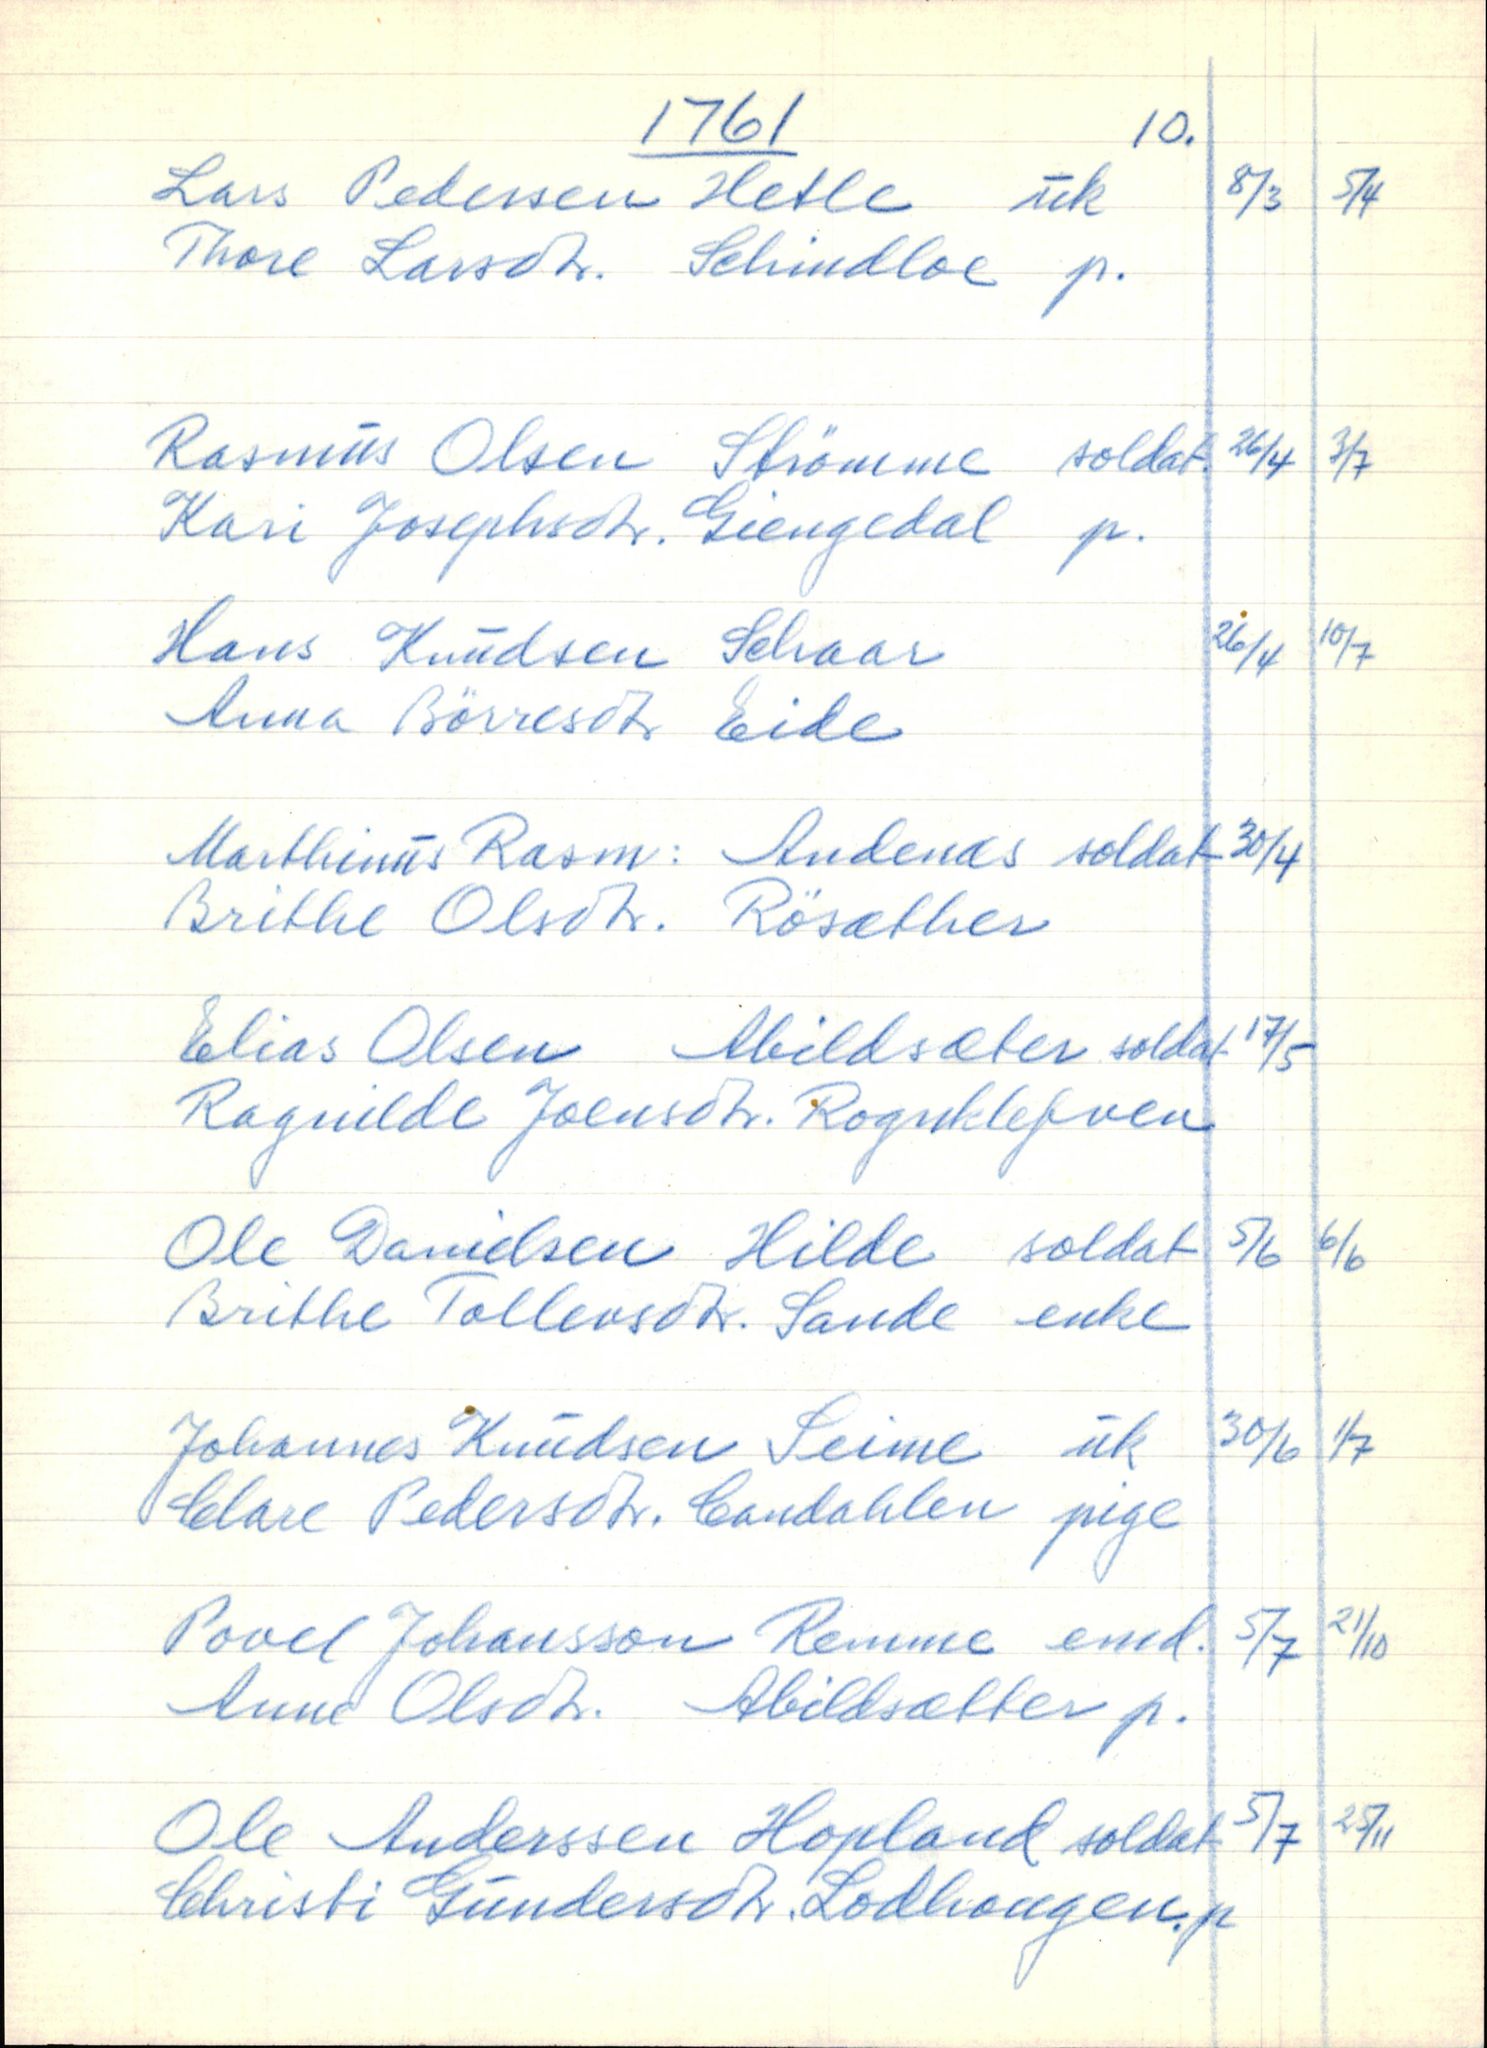 1761 10.
Lars Pedersen Hetle ūk 8/3 5/4
Thore Larsdtr. Schindloe p.
Rasmūs Olsen Strömme soldat. 26/4 3/7
Kari Josephsdtr. Giengedal p.
Hans Knūdsen Schaar 26/4 10/7
Anna Börresdtr Eide
Marthinūs Rasm: Andenæs soldat 30/4
Brithe Olsdtr. Rösæther
Elias Olsen Abildsæter soldat 17/5
Ragnilde Joensdtr. Rognklefven
Ole Danielsen Hilde soldat 5/6 6/6
Brithe Tollevsdtr. Sande enke
Johannes Knūdsen Seime ūk 30/6 1/7
Clare Pedersdtr. Candahlen pige
Povel Johansson Remme emd. 5/7 21/10
Anne Olsdtr. Abildsætter p.
Ole Anderssen Hopland soldat 5/7 25/11
Christi Gūndersdtr. Lodhougen. p